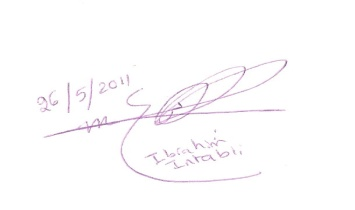 26/5/2011
Ibrahim
Intabli